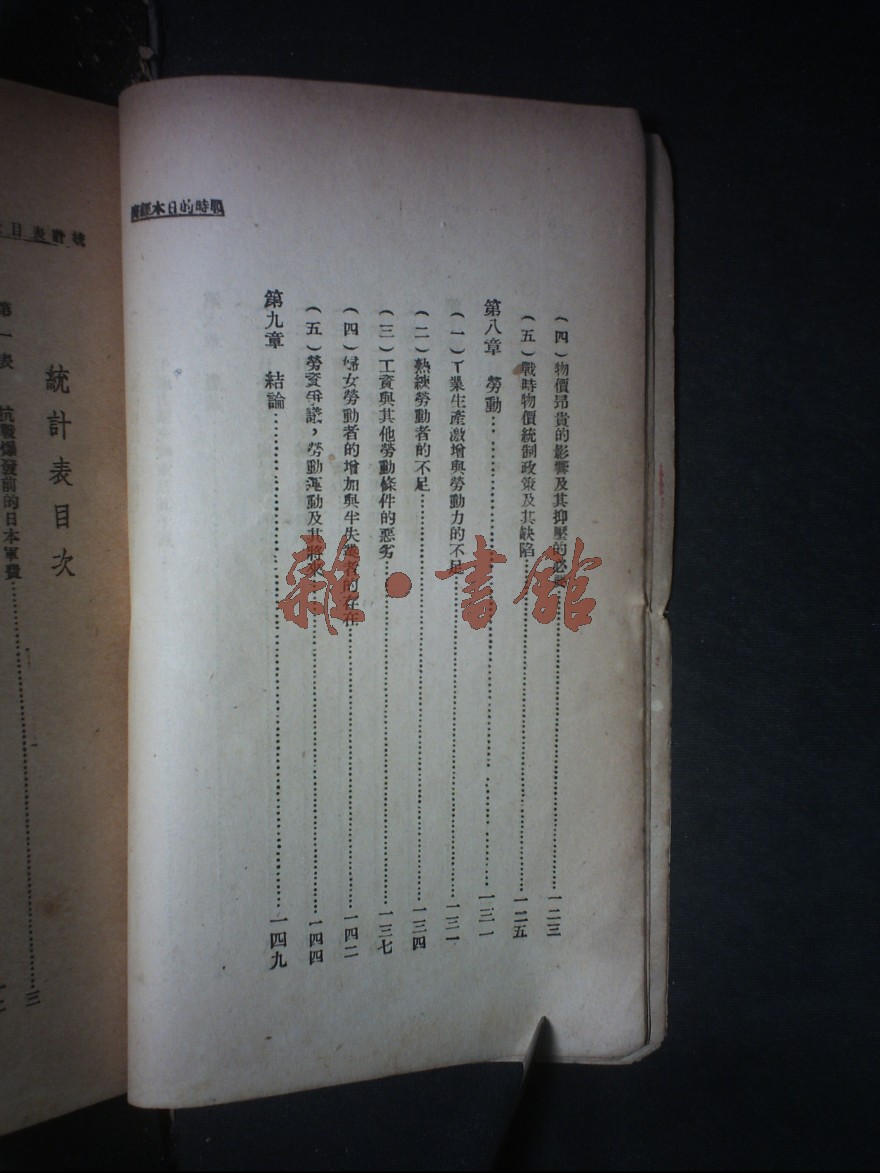 戰時的日本經濟
（四）物價昂貴的影響及其抑壓的必要……一二三
（五）戰時物價統制政策及其缺陷……一二五
第八章　勞動……一三一
（一）工業生產激增與勞動力的不足……一三一
（二）熟練勞動者的不足……一三四
（三）工資與其他勞動條件的惡劣……一三七
（四）婦女勞動者的增加與半失業者的存在……一四二
（五）勞資爭議，勞動運動及其將來……一四四
第九章　結論……一四九
統計表目
統計表目次
第一表　抗戰爆發前的日本軍費……三
雜·書館